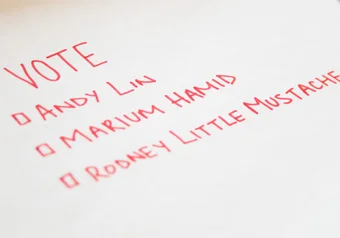 VOTE
ANDY LIN
MARIUM HAMID
RODNEY LITTLE MUSTACHE